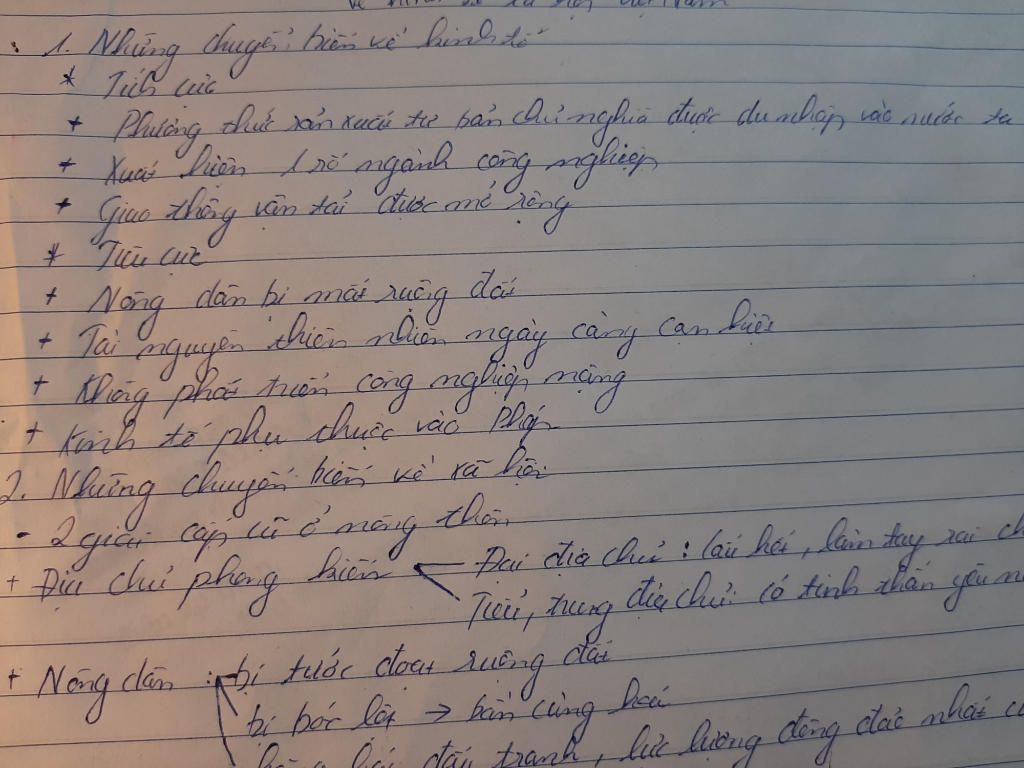 về kinh tế xã hội Việt Nam
1. Những chuyển biến về kinh tế
* Tích cực
+ Phương thức sản xuất tư bản chủ nghĩa được du nhập vào nước ta
+ Xuất hiện 1 số ngành công nghiệp
+ Giao thông vận tải được mở rộng
* Tiêu cực
+ Nông dân bị mất ruộng đất
+ Tài nguyên thiên nhiên ngày càng cạn kiệt
+ Không phát triển công nghiệp nặng
+ Kinh tế phụ thuộc vào Pháp
2. Những chuyển biến về xã hội
- 2 giai cấp cũ ở nông thôn
+ Địa chủ phong kiến Đại địa chủ : câu kết, làm tay sai
Tiểu, trung địa chủ: có tinh thần yêu
+ Nông dân : bị tước đoạt ruộng đất
bị bóc lột → bần cùng hoá
đấu tranh, lực lượng đông đảo nhất